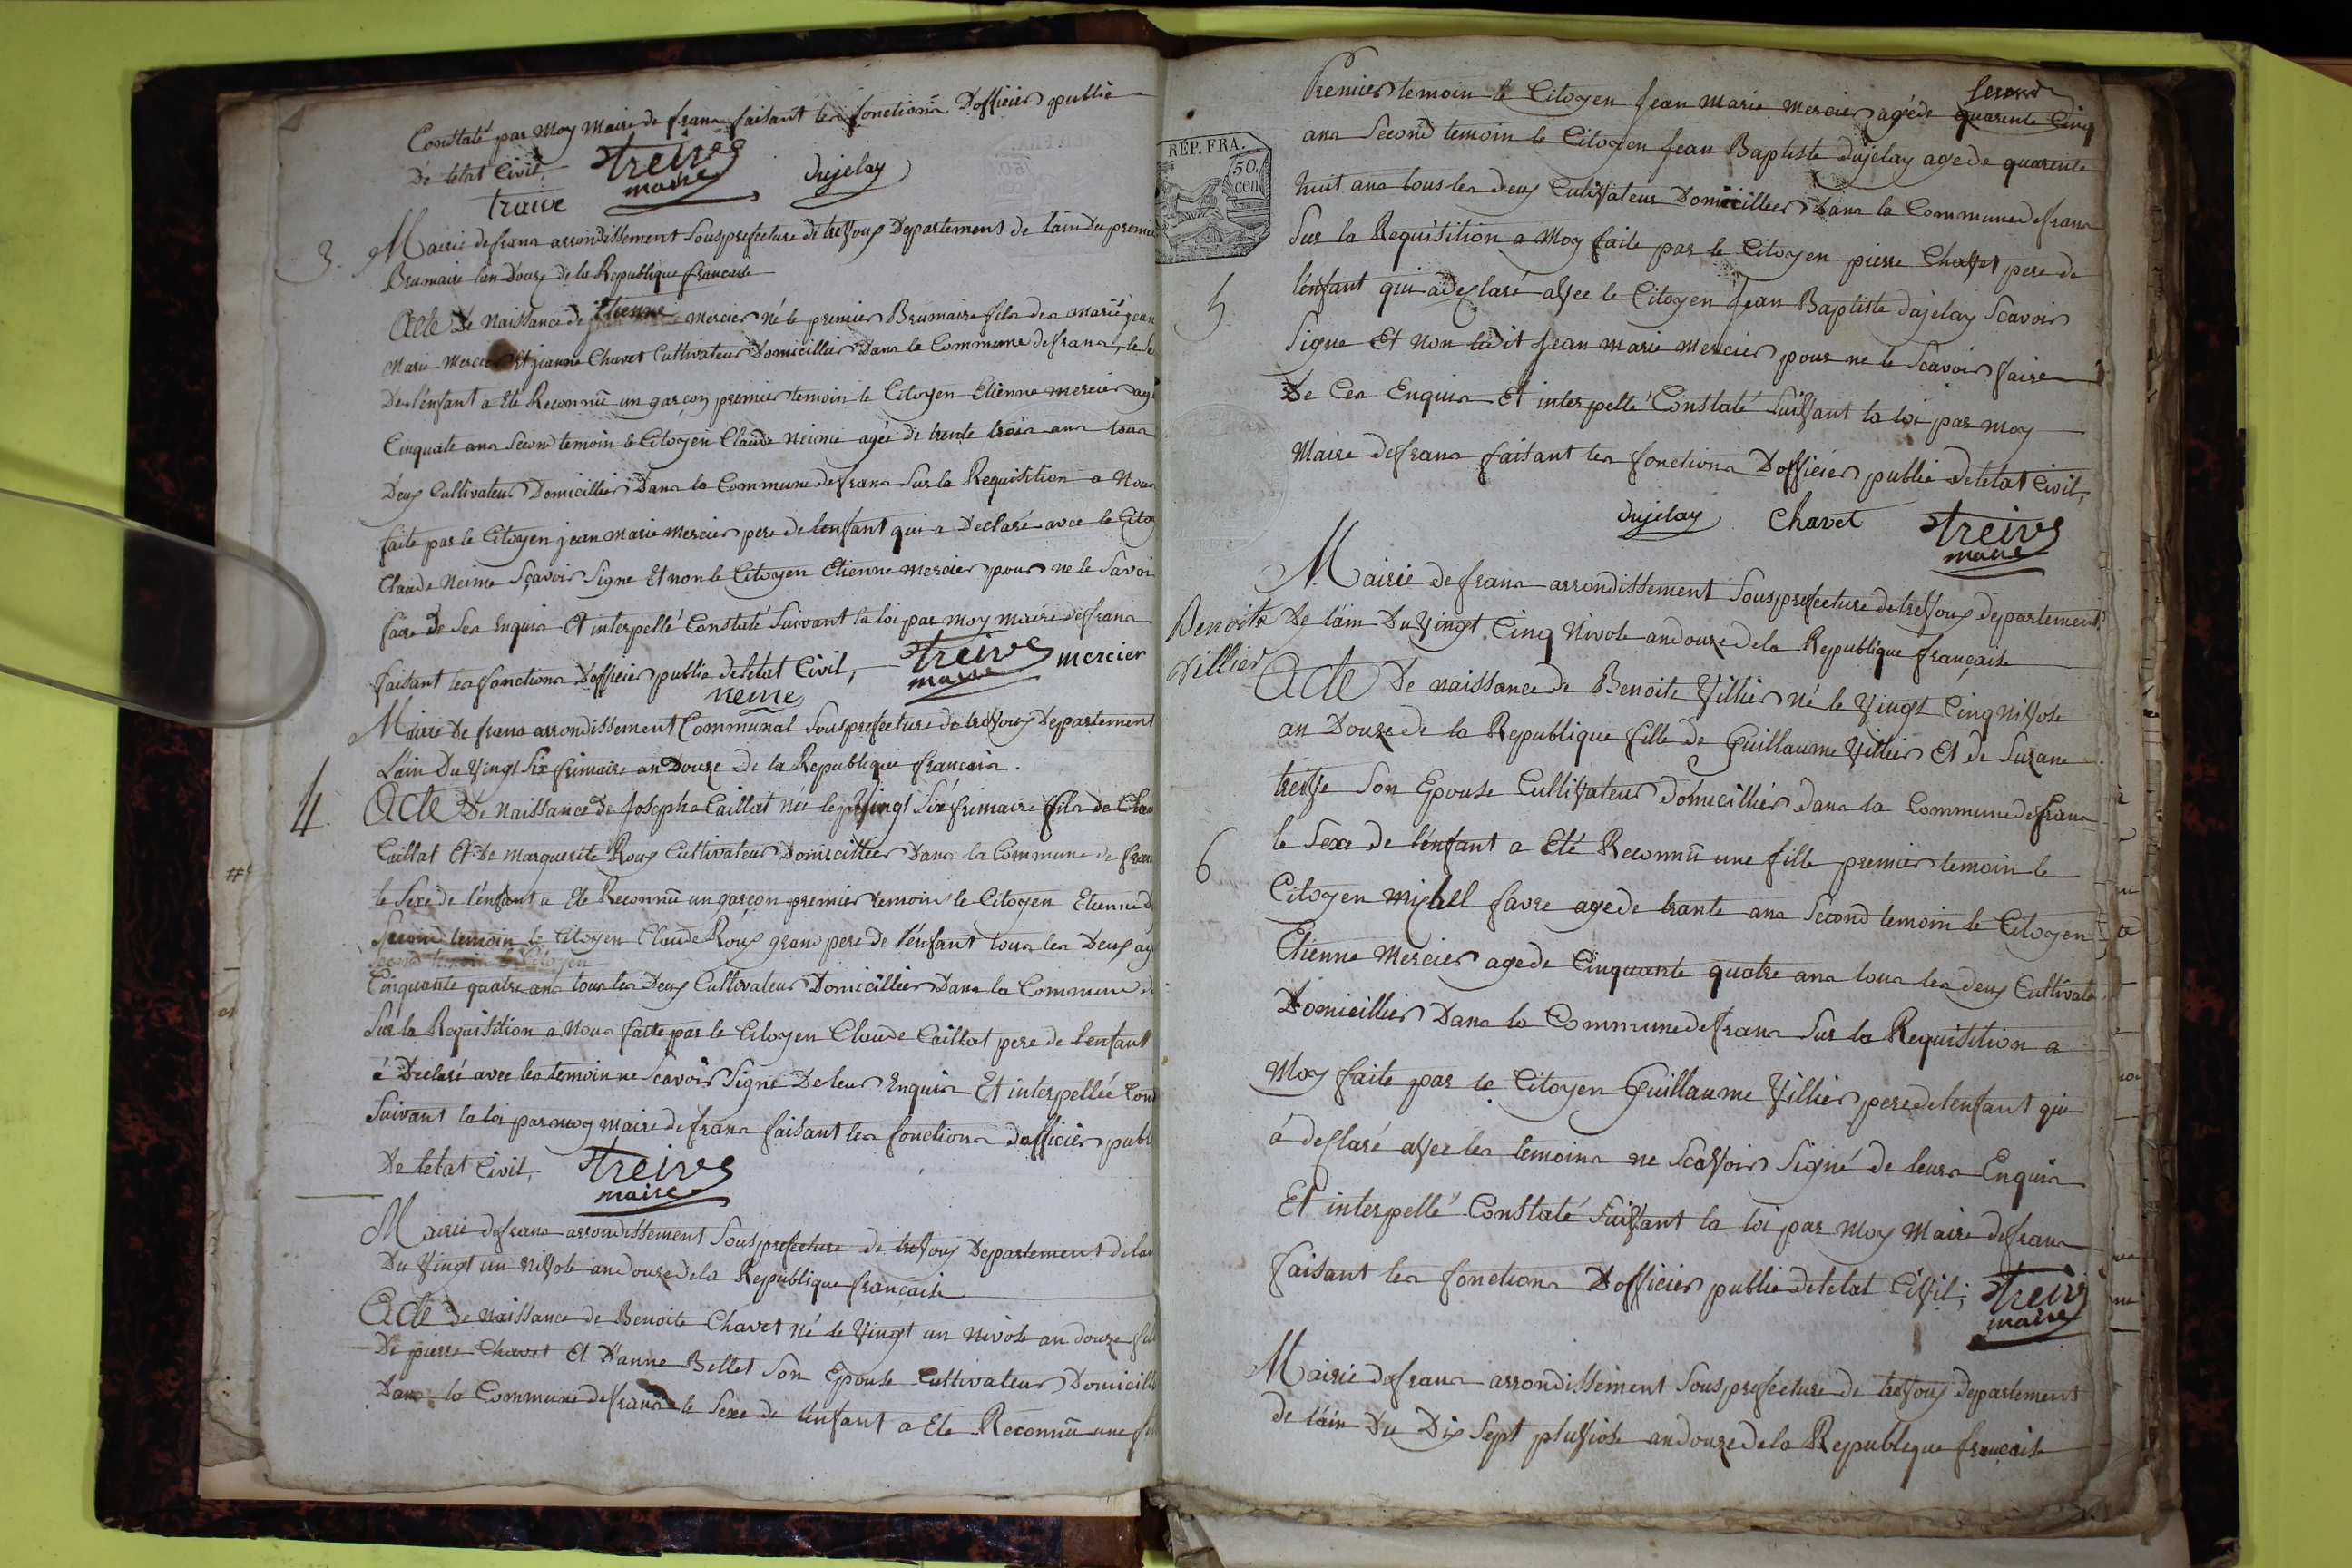 Constaté par Moy Maire de frans faisant les fonctions D'officier public
De letat Civil,
treive
maire
Dujelay
traive
3. Mairie de frans arrondissement Sousprefecture de trevoux Departement de lain Du premier
Brumaire lan Douze de la Republique francaise
Acte De Naissance de Etienne mercier né le premier Brumaire fils des marié jean
Marie Mercier Et jeanne Chavet Cultivateur Domicillier Dans la Commune de frans, le Se
De lénfant a Eté Reconnu un garçon premier temoin le Citoyen Etienne mercier agé
Cinquate ans Second temoin le Citoyen Claude Neime agée de trente trois ans tous
Deux Cultivateur Domicillier Dans la Commune de frans Sur la Requisition a Nous
faite par le Citoyen jean marie Mercier pere de lenfant qui a Declaré avec le Citoy
Claude Neime Sçavoir Signe Et non le Citoyen Etienne mercier pour ne le Savoir
faire De Ses Enquis Et interpellé Constaté Suivant la loi par moy maire de frans
faisant les fonctions D'officier public de letat Civil,
treive
maire
mercier
neme
Mairie De frans arrondissement Communal Sousprefecture de trevoux Departement
Lain Du Vingt Six frimaire an Douze de la Republique francais.
4 Acte De Naissance De Josephe Caillat née le Vingt Six frimaire fils de Clau
Caillat Et De Marguerite Roux Cultivateur Domicillier Dans la Commune de fran
le Sexe de lénfant a Eté Reconnu un garçon premier temoin le Citoyen Etienne D
Second temoin le Citoyen Claude Roux grand pere de lénfant tous les Deux ag
Second temoin le Citoyen
Cinquante quatre ans tous les Deux Cultivateur Domicillier Dans la Commune d
Sur la Requisition a Nous faite par le Citoyen Claude Caillat pere de lenfant
á Declaré avec les temoin ne Scavoir Signé De leur Enquis Et interpellée Cons
Suivant la loi par moy maire de frans faisant les fonctions d'officier publ
De letat Civil,
treive
maire
Mairie de frans arrondissement Sousprefecture de trevoux Departement de lai
Du Vingt un nivose an douze de la Republique francaise
Acte de Naissance de Benoite Chavet né le Vingt un Nivose an douze fill
De pierre Chavet Et D'anne Bellet Son Epouse Cultivateur Domicill
Dans la Commune de frans le Sexe de lénfant a Eté Reconnu une fil
RÉP. FRA.
50.
cen
Premier temoin le Citoyen Jean Marie Mercier agé de quarente Cinq
ans Second temoin le Citoyen Jean Baptiste Dujelay age de quarente
huit ans tous les deux Cultivateur Domicillier Dans la Commune de frans
Sur la Requisition a Moy faite par le Citoyen pierre Chavet pere de
5 lénfant qui a declaré avec le Citoyen Jean Baptiste Dujelay Scavoir
Signe Et Non ledit Jean marie Mercier pour ne le Scavoir faire
De Ces Enquis Et interpellé Constaté Suivant la loi par moy
Maire de frans faisant les fonctions D'officier public de letat Civil,
Dujelay Chavet treive
maire
Mairie de frans arrondissement Sousprefecture de trevoux departement
Benoite
Villier
De lain Du Vingt Cinq Nivose an douze de la Republique française
Acte De naissance de Benoite Villier né le Vingt Cinq Nivose
an Douze de la Republique fille de Guillaume Villier Et de Suzane
treive Son Epouse Cultivateur domicillier dans la Commune de frans
6 le Sexe de lénfant a Eté Reconnu une fille premier temoin le
Citoyen michell favre age de trante ans Second temoin le Citoyen
Etienne Mercier age de Cinquante quatre ans tous les deux Cultivate
Domicillier Dans la Commune de frans Sur la Requisition a
Moy faite par le Citoyen Guillaume Villier pere de lenfant qui
á declaré avec les temoins ne Scavoir Signé de leurs Enquis
Et interpellé Constaté Suivant la loi par Moy Maire de frans
faisant les fonctions D'officier public de letat Civil,
treive
maire
Mairie de frans arrondissement Sousprefecture de trevoux departement
de lain Du Dix Sept pluviose an douze de la Republique française